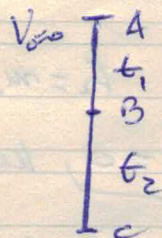 V₀=0 A
t₁
B
t₂
C